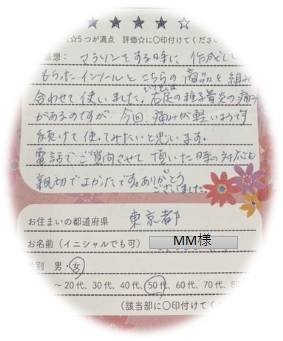 ★★★★☆
(☆5つが満点 評価☆に〇印付けてくださ
想: マラソンをする時に、作成して
もらったインソールとこちらの商品を組み
合わせて使いました。右足の種子骨炎の痛み
があるのですが、今回、痛みが軽いようです
続けて使ってみたいと思います。
電話でご質問させて頂いた時の対応も
親切でよかったです。ありがとう
ございました。
お住まいの都道府県 東京都
お名前(イニシャルでも可) MM様
別 男・女
~20代、30代、40代、50代、60代、70代、8
(該当部に〇印付けてく